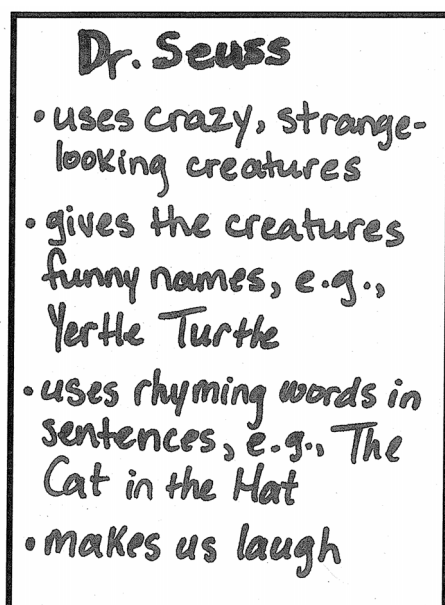 Dr. Seuss
• uses crazy, strange-
looking creatures
• gives the creatures
funny names, e.g.,
Yertle Turtle
• uses rhyming words in
sentences, e.g., The
Cat in the Hat
• makes us laugh